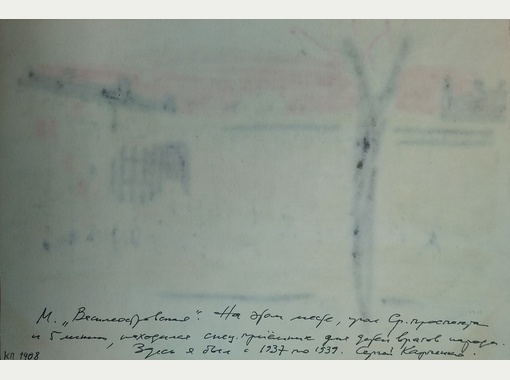 М. „Василеостровская". На этом месте, угол Ср. проспекта
и 5 линии, находился спец. приёмник для детей врагов народа.
Здесь я был с 1937 по 1939. Сергей
КП 1908